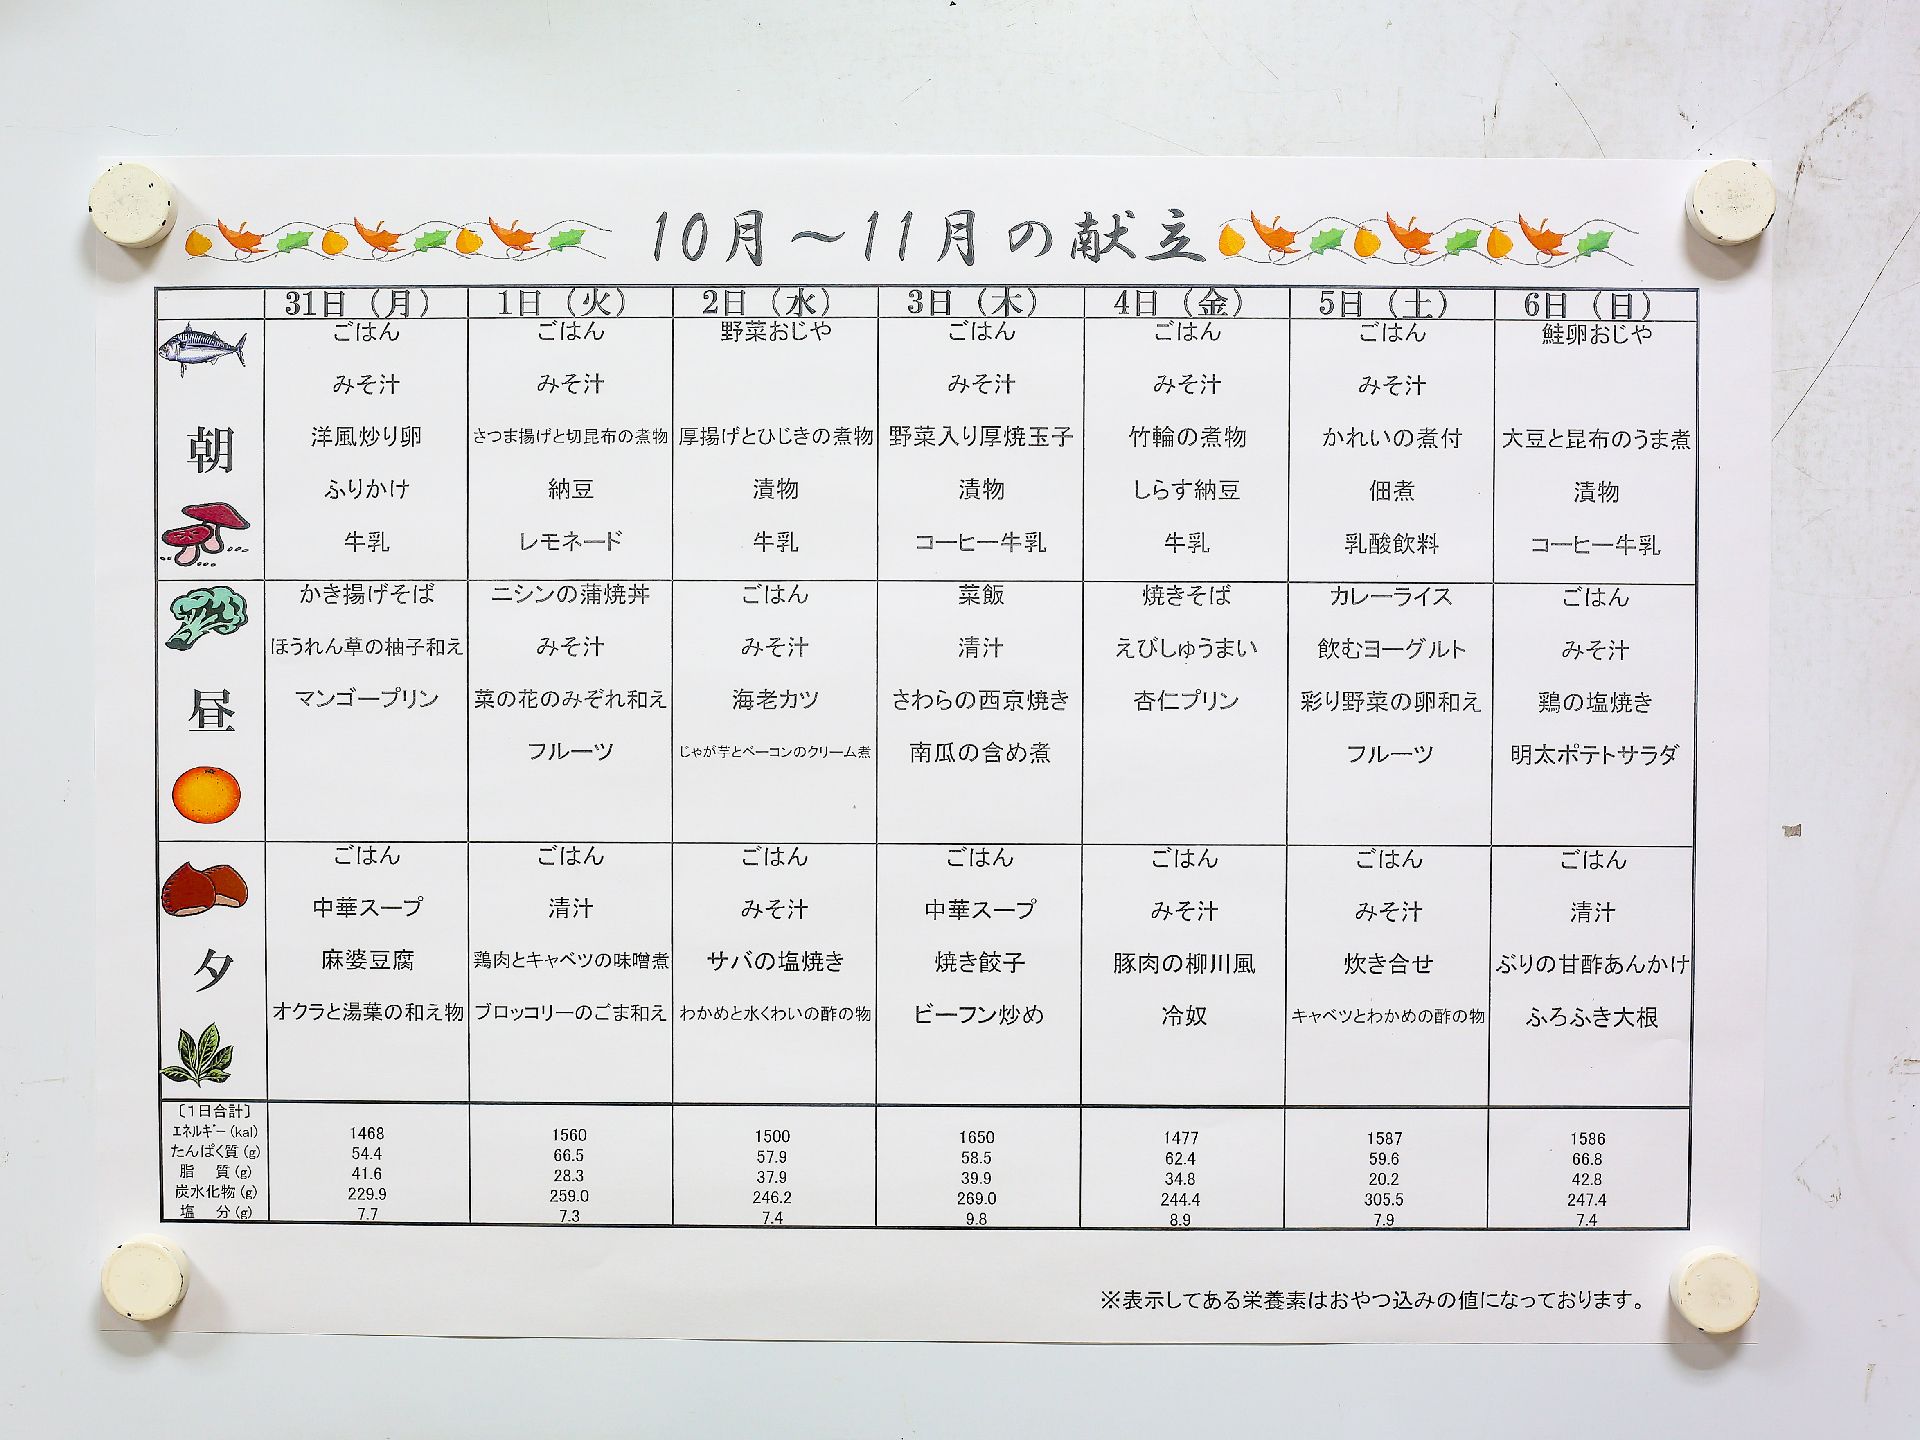 10月～11月の献立
31日（月） 1日（火） 2日（水） 3日（木） 4日（金） 5日（土） 6日（日）
朝
ごはん ごはん 野菜おじや ごはん ごはん ごはん 鮭卵おじや
みそ汁 みそ汁 みそ汁 みそ汁 みそ汁
洋風炒り卵 さつま揚げと切昆布の煮物 厚揚げとひじきの煮物 野菜入り厚焼玉子 竹輪の煮物 かれいの煮付 大豆と昆布のうま煮
ふりかけ 納豆 漬物 漬物 しらす納豆 佃煮 漬物
牛乳 レモネード 牛乳 コーヒー牛乳 牛乳 乳酸飲料 コーヒー牛乳
昼
かき揚げそば ニシンの蒲焼丼 ごはん 菜飯 焼きそば カレーライス ごはん
ほうれん草の柚子和え みそ汁 みそ汁 清汁 えびしゅうまい 飲むヨーグルト みそ汁
マンゴープリン 菜の花のみぞれ和え 海老カツ さわらの西京焼き 杏仁プリン 彩り野菜の卵和え 鶏の塩焼き
フルーツ じゃが芋とベーコンのクリーム煮 南瓜の含め煮 フルーツ 明太ポテトサラダ
夕
ごはん ごはん ごはん ごはん ごはん ごはん ごはん
中華スープ 清汁 みそ汁 中華スープ みそ汁 みそ汁 清汁
麻婆豆腐 鶏肉とキャベツの味噌煮 サバの塩焼き 焼き餃子 豚肉の柳川風 炊き合せ ぶりの甘酢あんかけ
オクラと湯葉の和え物 ブロッコリーのごま和え わかめと水くわいの酢の物 ビーフン炒め 冷奴 キャベツとわかめの酢の物 ふろふき大根
〔1日合計〕
ｴﾈﾙｷﾞｰ(kal) 1468 1560 1500 1650 1477 1587 1586
たんぱく質(g) 54.4 66.5 57.9 58.5 62.4 59.6 66.8
脂　質(g) 41.6 28.3 37.9 39.9 34.8 20.2 42.8
炭水化物(g) 229.9 259.0 246.2 269.0 244.4 305.5 247.4
塩　分(g) 7.7 7.3 7.4 9.8 8.9 7.9 7.4
※表示してある栄養素はおやつ込みの値になっております。